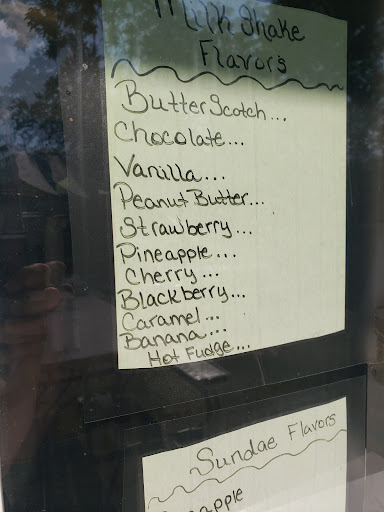 Milk Shake
Flavors
ButterScotch...
Chocolate...
Vanilla...
Peanut Butter...
Strawberry...
Pineapple...
Cherry...
Blackberry...
Caramel...
Banana...
Hot Fudge...
Sundae Flavors